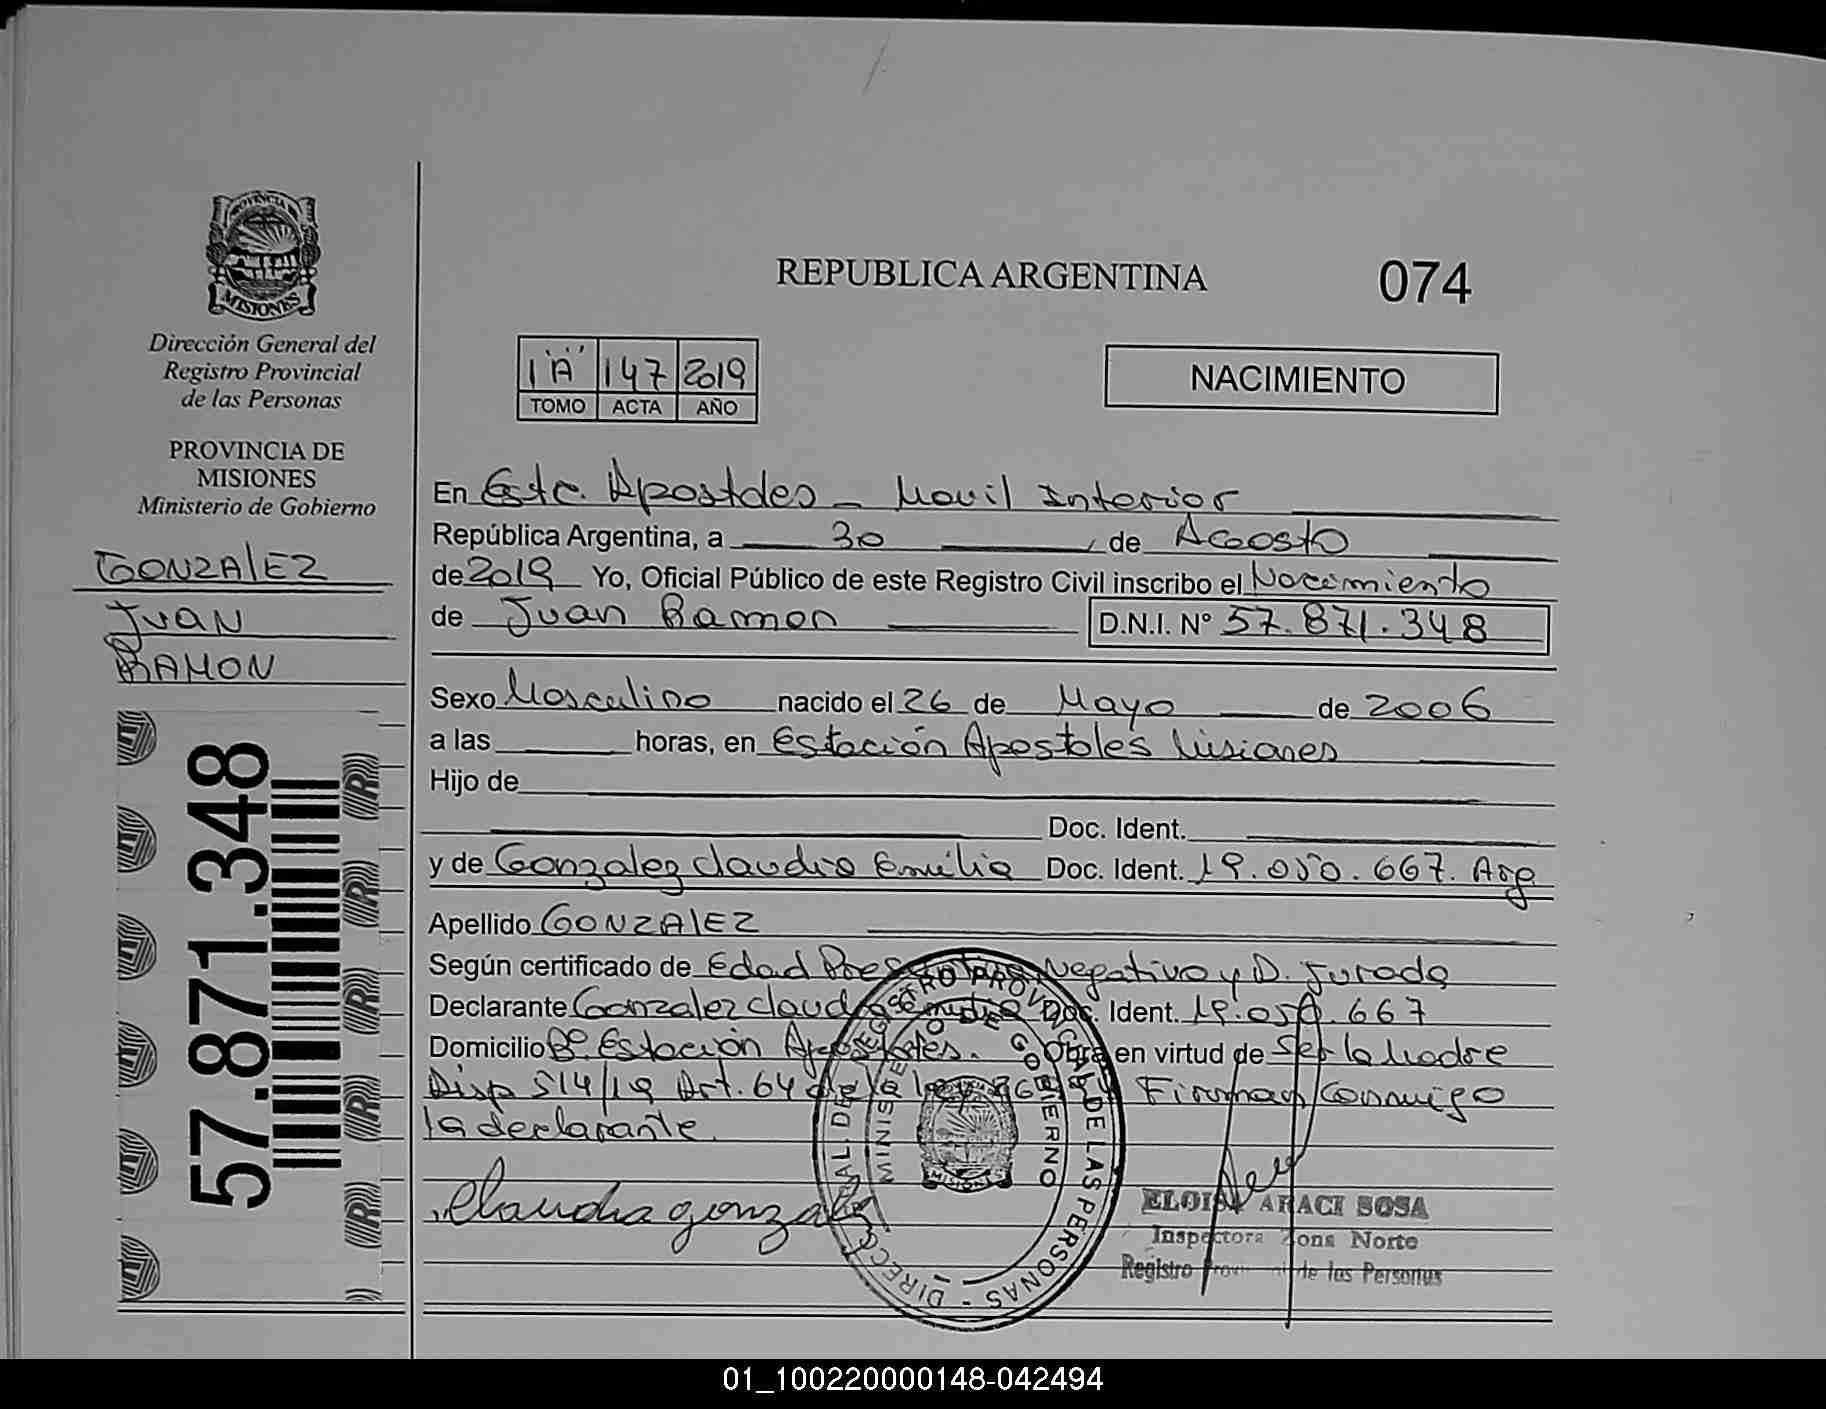 PROVINCIA DE
MISIONES
Dirección General del
Registro Provincial
de las Personas
PROVINCIA DE
MISIONES
Ministerio de Gobierno
GONZALEZ
JUAN
RAMON
57.871.348
REPUBLICA ARGENTINA
074
1 "A" 147 2019
TOMO ACTA AÑO
NACIMIENTO
En Estc. Apostoles - Movil Interior
República Argentina, a 30 de Agosto
de 2019 Yo, Oficial Público de este Registro Civil inscribo el Nacimiento
de Juan Ramon D.N.I. Nº 57.871.348
Sexo Masculino nacido el 26 de Mayo de 2006
a las horas, en Estación Apostoles Misiones
Hijo de
Doc. Ident.
y de Gonzalez Claudia Emilia Doc. Ident. 19.050.667. Arg
Apellido GONZALEZ
Según certificado de Edad Presuntiva, Negativa y D. Jurada
Declarante Gonzalez Claudia Emilia Doc. Ident. 19.050.667
Domicilio Bº. Estación Apostoles. Obra en virtud de Ser la Madre
Disp 514/19 Art. 64 de la ley Firman Conmigo
la declarante.
Claudia gonzalez
DIRECC. GRAL. DEL REGISTRO PROVINCIAL DE LAS PERSONAS
MINISTERIO DE GOBIERNO
MISIONES
ELOISA ARACI SOSA
Inspectora Zona Norte
Registro Provincial de las Personas
01_100220000148-042494